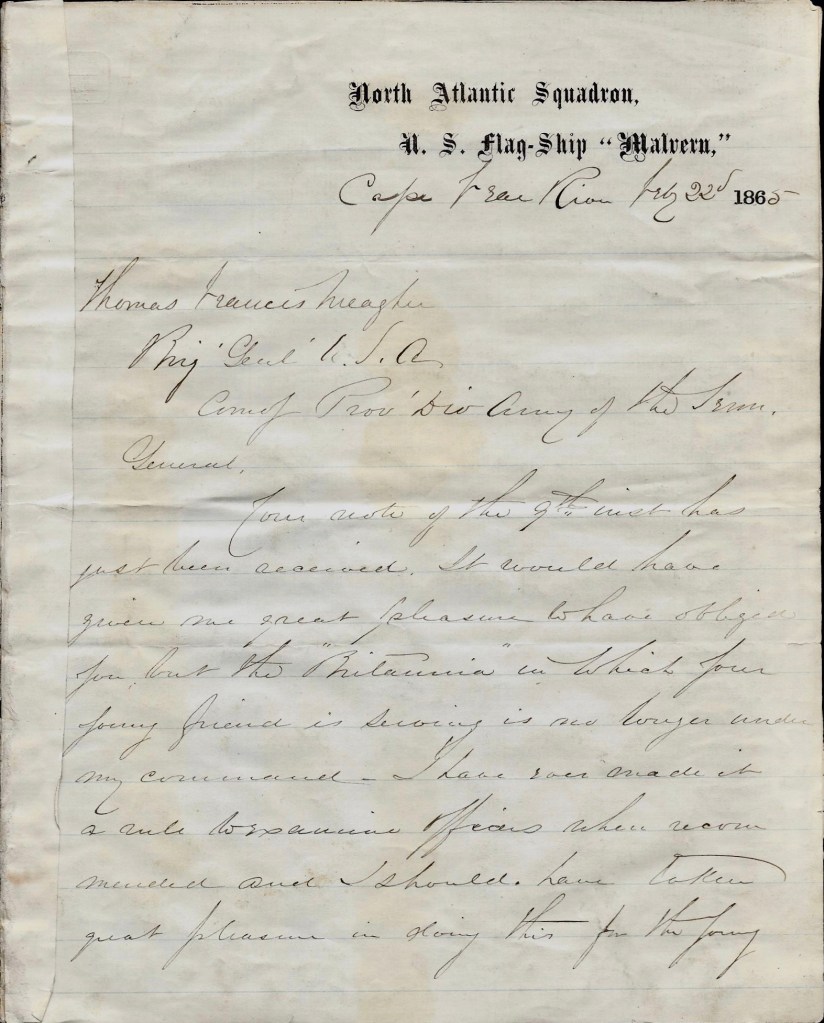 North Atlantic Squadron,
U. S. Flag-Ship "Malvern,"
Cape Fear River Feby 22d 1865
Thomas Francis Meagher
Brig' Genl' U. S. A
Comdg Prov' Div Army of the Tenn.
General,
Your note of the 9th inst has
just been received. It would have
given me great pleasure to have obliged
you, but the "Britannia" in which your
young friend is serving is no longer under
my command - I have ever made it
a rule to examine officers when recom
mended and I should have taken
great pleasure in doing this for the young